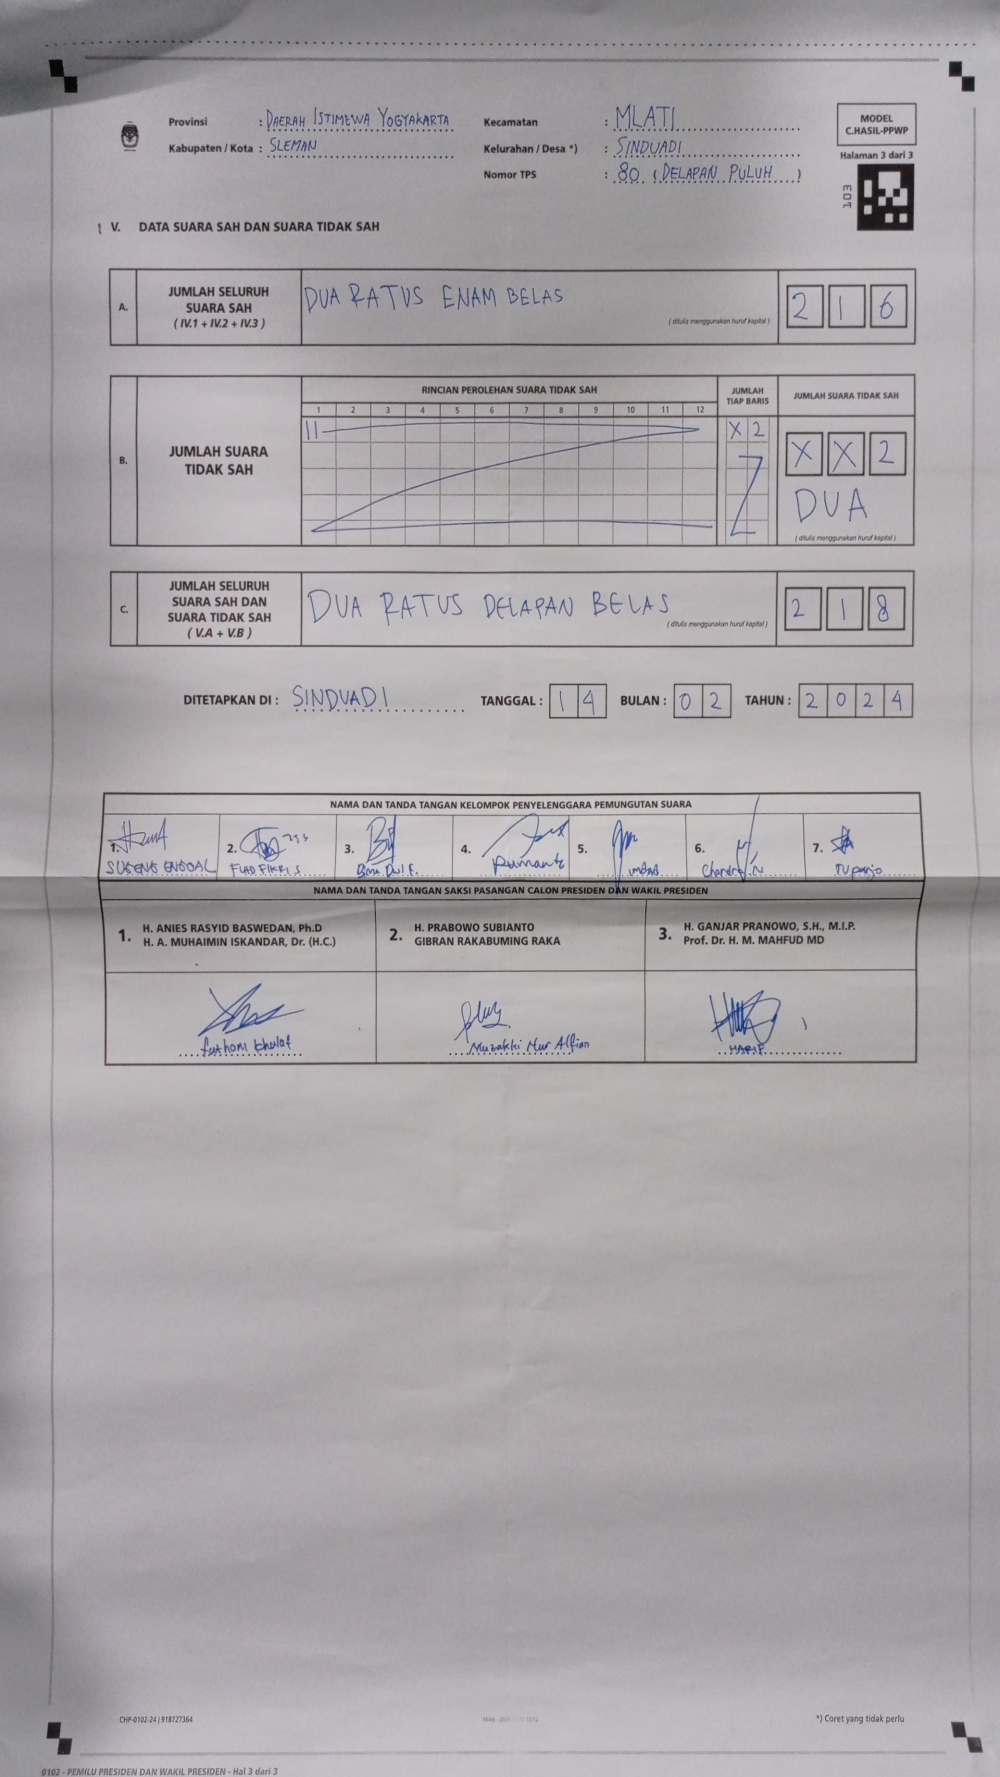 Provinsi : DAERAH ISTIMEWA YOGYAKARTA
Kabupaten / Kota : SLEMAN
Kecamatan : MLATI
Kelurahan / Desa *) : SINDUADI
Nomor TPS : 80 ( DELAPAN PULUH )
MODEL
C.HASIL-PPWP
Halaman 3 dari 3
V. DATA SUARA SAH DAN SUARA TIDAK SAH
A. JUMLAH SELURUH SUARA SAH ( IV.1 + IV.2 + IV.3 )
DUA RATUS ENAM BELAS
( ditulis menggunakan huruf kapital )
2 1 6
B. JUMLAH SUARA TIDAK SAH
RINCIAN PEROLEHAN SUARA TIDAK SAH
1 2 3 4 5 6 7 8 9 10 11 12
JUMLAH TIAP BARIS
X 2
JUMLAH SUARA TIDAK SAH
X X 2
DUA
( ditulis menggunakan huruf kapital )
C. JUMLAH SELURUH SUARA SAH DAN SUARA TIDAK SAH ( V.A + V.B )
DUA RATUS DELAPAN BELAS
( ditulis menggunakan huruf kapital )
2 1 8
DITETAPKAN DI : SINDUADI TANGGAL : 1 4 BULAN : 0 2 TAHUN : 2 0 2 4
NAMA DAN TANDA TANGAN KELOMPOK PENYELENGGARA PEMUNGUTAN SUARA
1. 2. 3. 4. 5. 6. 7.
NAMA DAN TANDA TANGAN SAKSI PASANGAN CALON PRESIDEN DAN WAKIL PRESIDEN
1. H. ANIES RASYID BASWEDAN, Ph.D
H. A. MUHAIMIN ISKANDAR, Dr. (H.C.)
2. H. PRABOWO SUBIANTO
GIBRAN RAKABUMING RAKA
3. H. GANJAR PRANOWO, S.H., M.I.P.
Prof. Dr. H. M. MAHFUD MD
Muzakki Nur Alfian
CHP-0102-24 | 918727364
*) Coret yang tidak perlu
0102 - PEMILU PRESIDEN DAN WAKIL PRESIDEN - Hal 3 dari 3